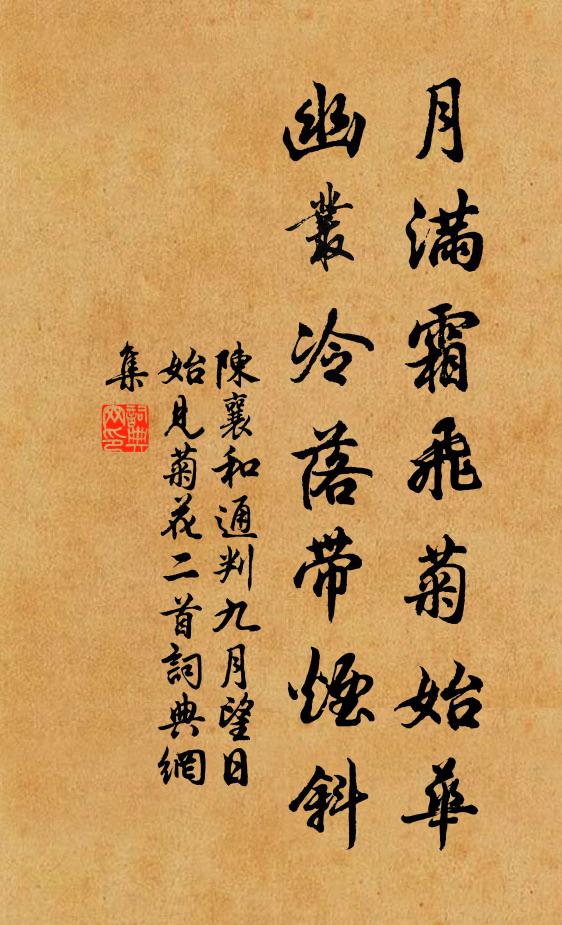 月滿霜飛菊始華
幽叢冷落帶煙斜
陳襄和通判九月望日
始見菊花二首詞典網
集
詞典
网印